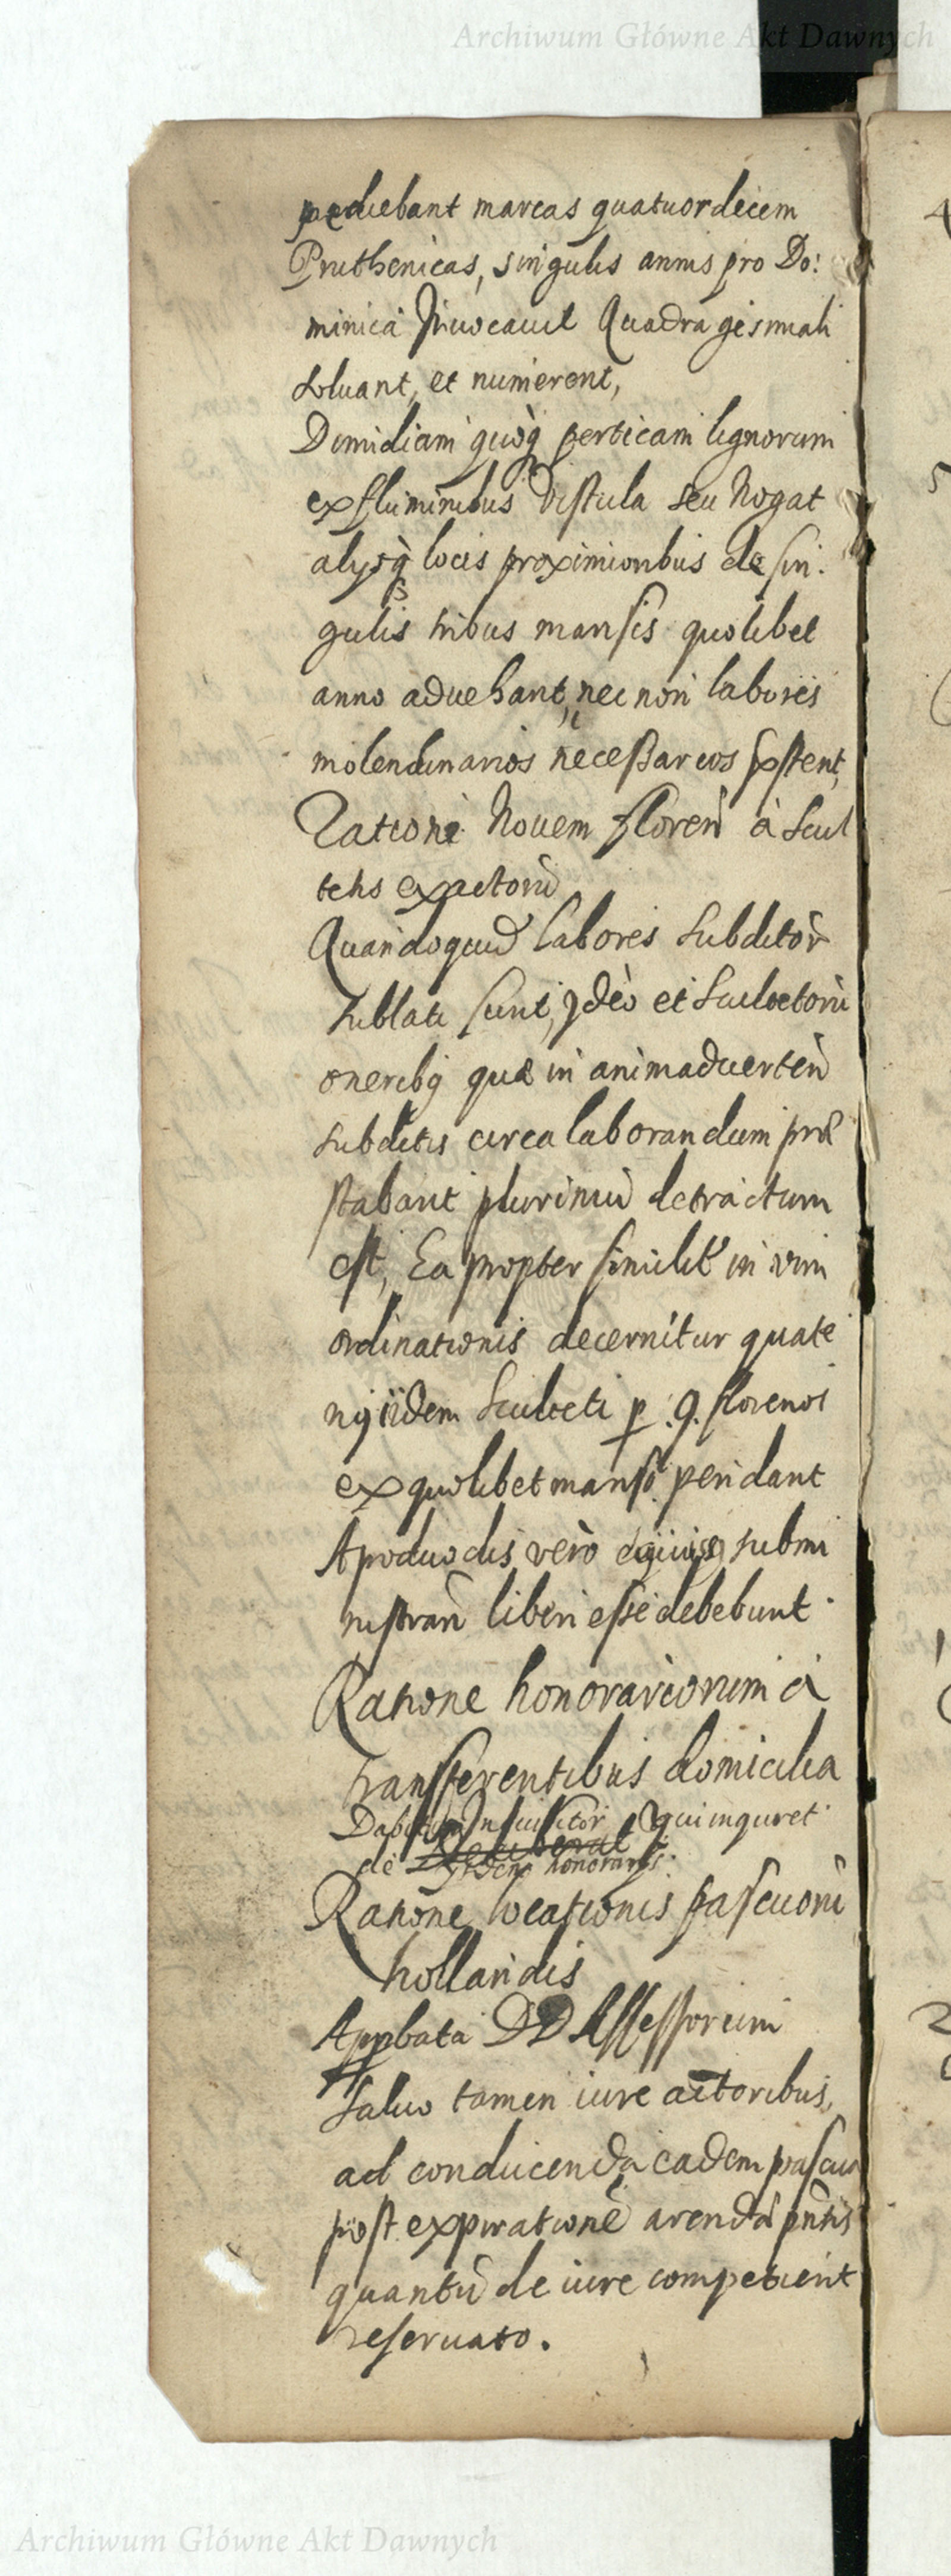 Archiwum Główne Akt Dawnych
marcas quatuordecem
Pruthenicas, singulis annis pro Do:
minica Inuocauit Quadragesimali
soluant, et numerent,
Dimidiam quoq perticam lignorum
ex fluminibus Vistula seu Nogat
alysq locis proximioribus de sin:
gulis tribus mansis quolibet
anno aduehant, nec non labores
molendinarios necessarios
Ratione Nouem floren à Scul
tetis exactorū
Quandoquid labores subditor
sublati sunt, Ideò et Scultetorū
oneribq quæ in animaduerten
subditis circa laborandum præ
stabant plurimū detractum
est, Ea propter similit in vim
ordinationis decernitur quate
nq iidem Sculteti p .9. florenos
ex quolibet manso pendant
A poduodis verò submi
nistran liberi esse debebunt.
Ratione honorariorum à
transferentibus domicilia
Inquisitor qui inquiret
de honorarys.
Ratione locationis pascuorū
hollandis
Appbata DD Assessorum
saluo tamen iure actoribus,
ad conducenda eadem pascua
post expirationē arendæ pntis
quantū de iure competierit
reseruato.
Archiwum Główne Akt Dawnych